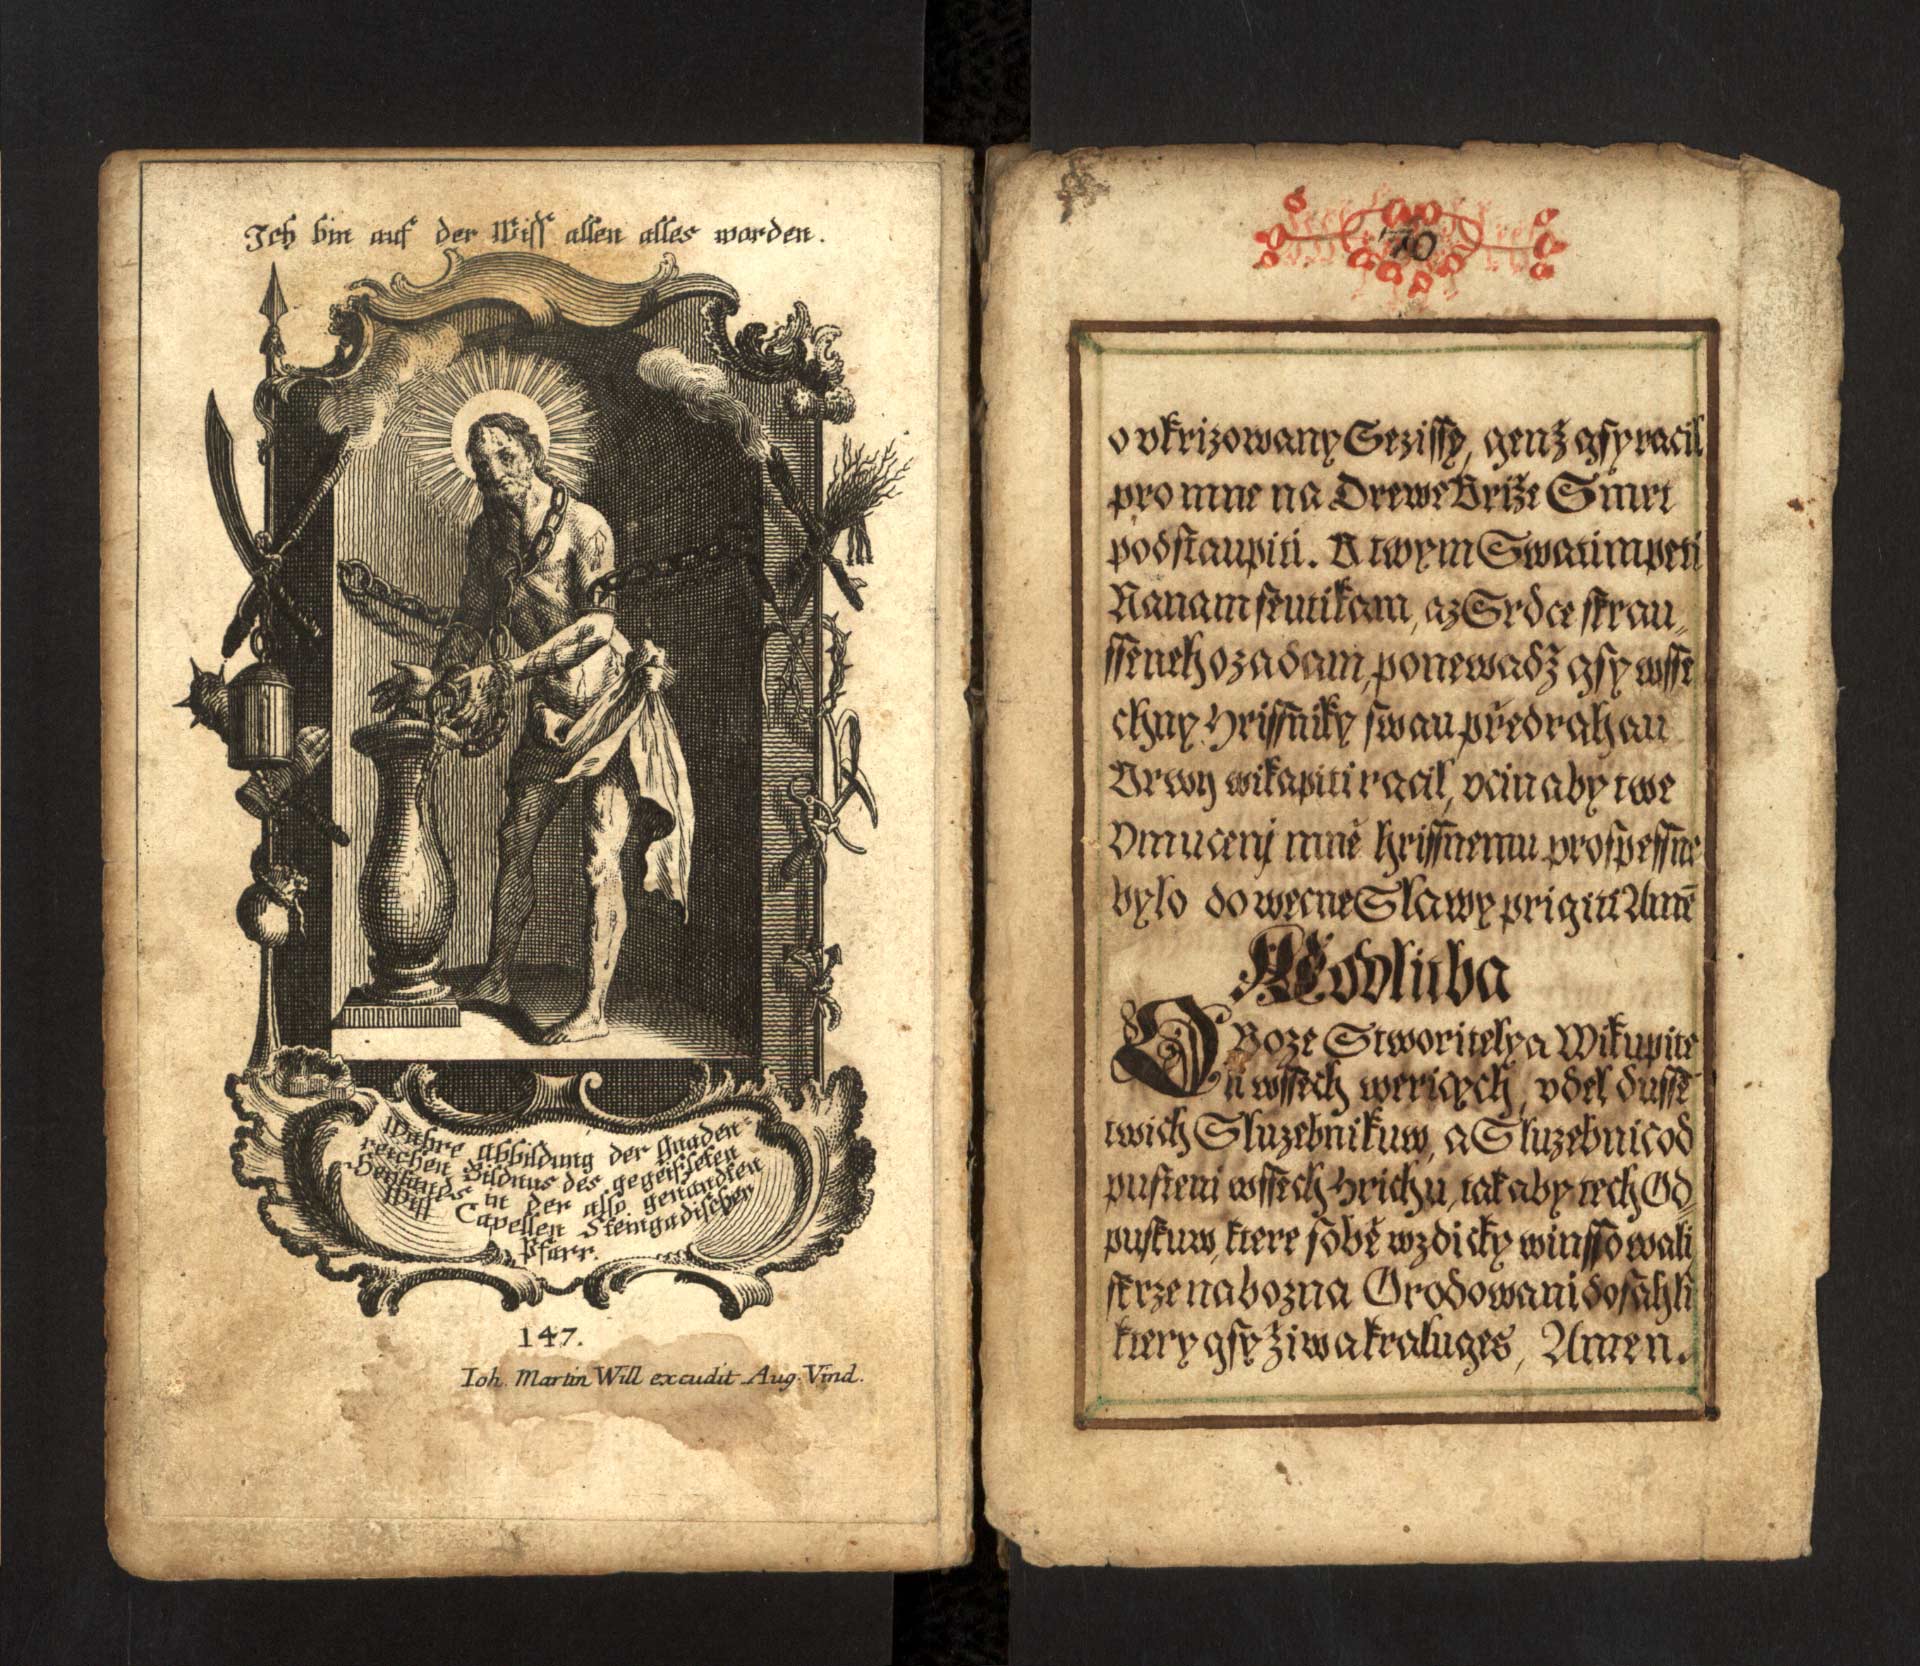 Ich bin auf der Wiss allen alles worden.
Wahre abbildung der Gnaden-
reichen Bildnus des gegeisleten
Heilands in der also genandten
Wiss Capellen Steingadischer
Pfarr.
147.
Ioh. Martin Will excudit Aug. Vind.
70
o vkrizowany Gezissy, genž gsy racil
pro mne na Drewe Křiže Smrt
podstaupiti. K twym Swatim peti
Ranam se utikam, az Srdce skrau-
sseneho zadam, ponewadž gsy wsse
chny Hrissniky swau předrahau
Krwy wikapiti racil, vcin aby twe
Vmucenj mně hrissnemu prospessne
bylo do wecne Slawy prigiti Amē
Modlitba
O Boze Stworitely a Wikupite
li wssech wericych, vdel dussē
twich Sluzebnikuw, a Sluzebnic od
pusteni wssech Hrichu, tak aby tech Od-
pustuw, ktere sobě wzdicky winssowali
skrze nabozna Orodowani dosahli
ktery gsy živ a kraluges, Amen.